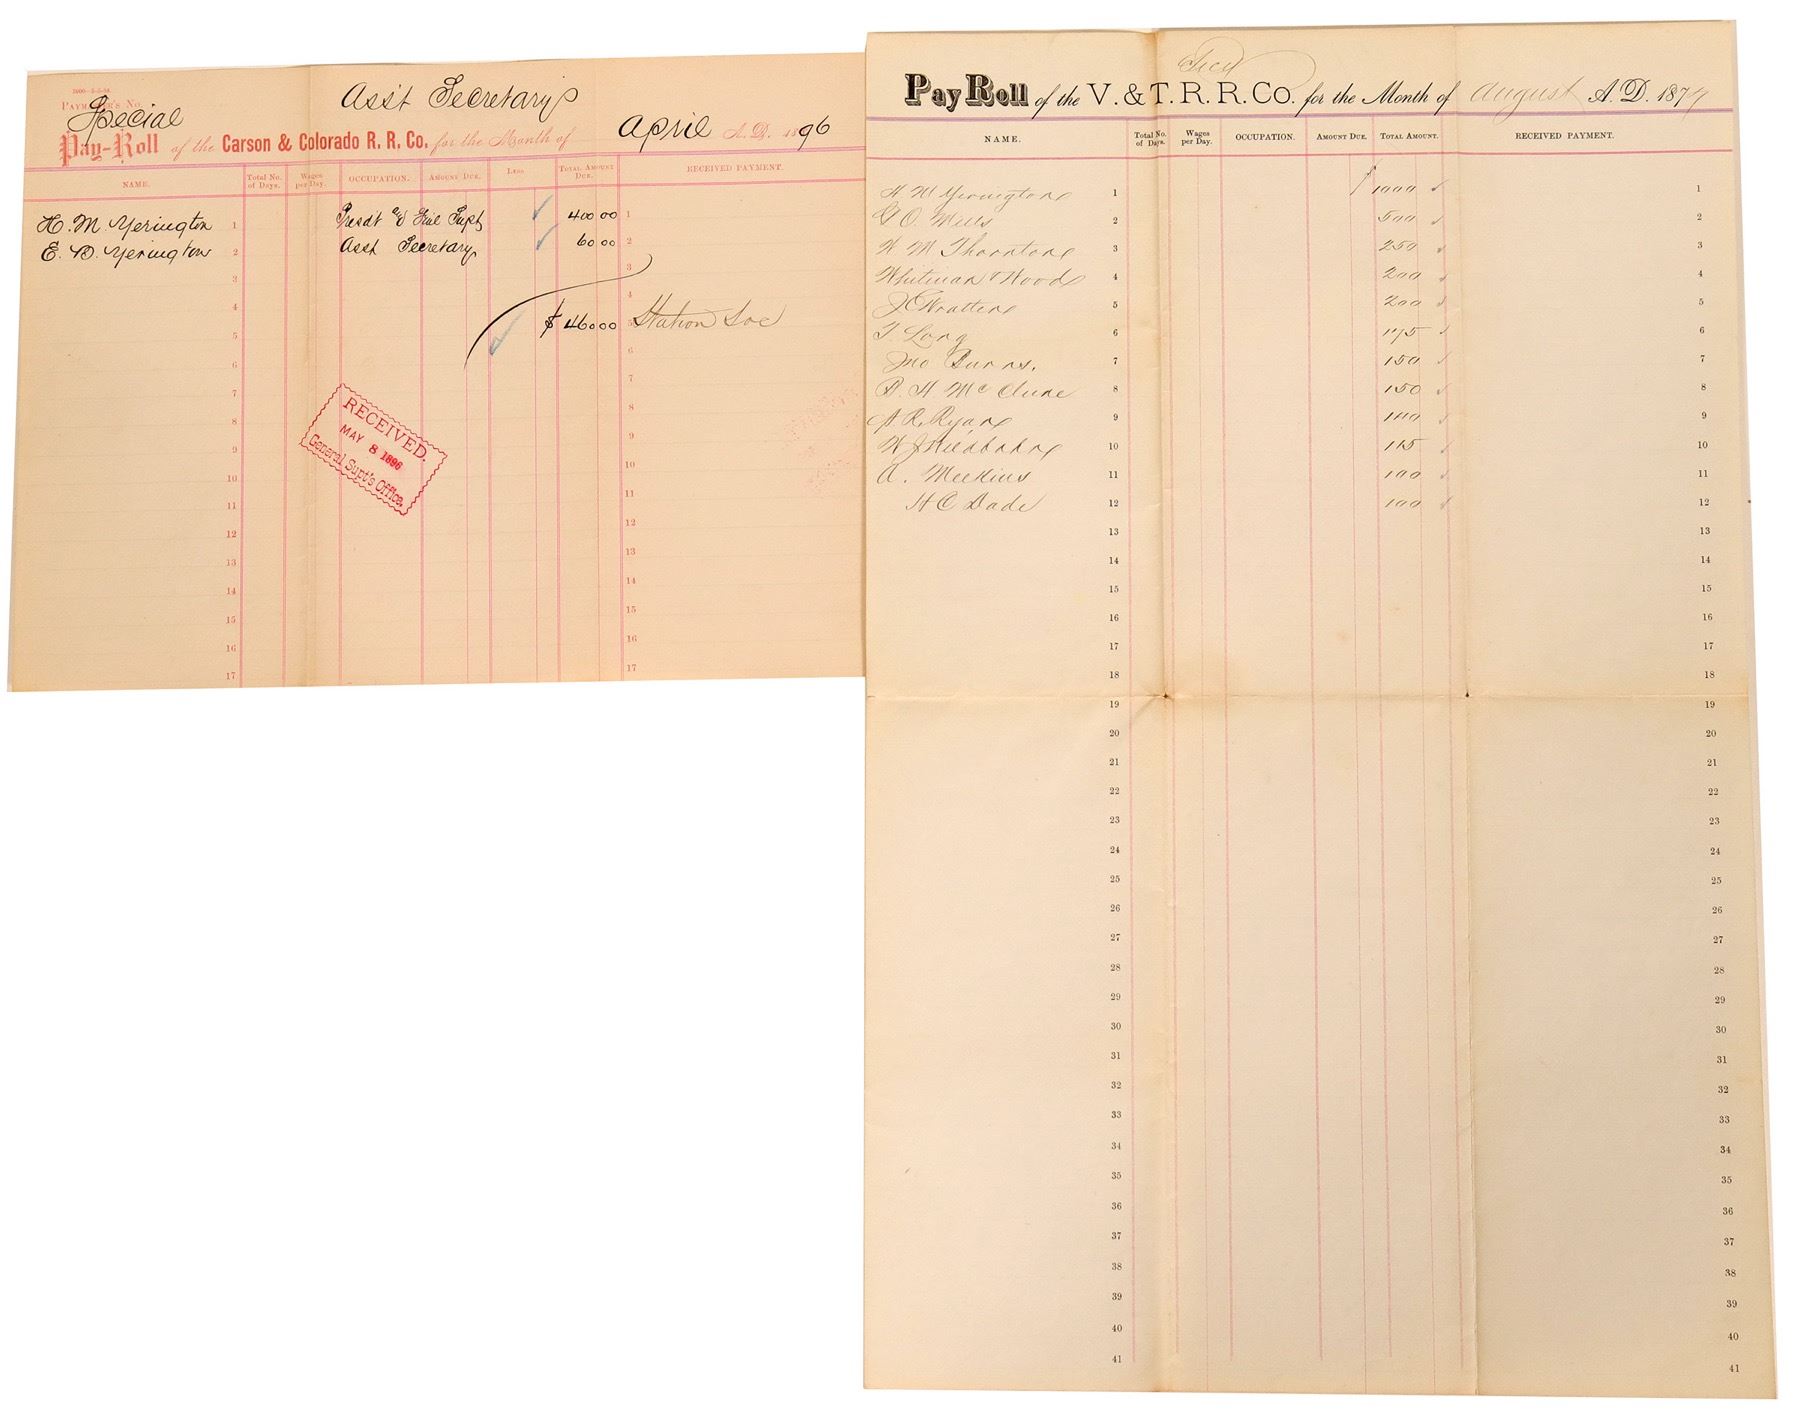 3000—5-5-94.
PAYMASTER'S No.
Special
Ass't Secretarys
Pay-Roll of the Carson & Colorado R. R. Co. for the Month of April A. D. 1896
NAME. Total No. of Days. Wages per Day. OCCUPATION. AMOUNT DUE. LESS TOTAL AMOUNT DUE. RECEIVED PAYMENT.
H. M. Yerington 1 Presdt & Gnl Supt ✓ 400 00 1
E. B. Yerington 2 Asst Secretary ✓ 60 00 2
3 3
4 4
5 ✓ $ 460 00 5 Station
6 6
7 7
8 8
9 9
10 10
11 11
12 12
13 13
14 14
15 15
16 16
17 17
RECEIVED.
MAY 8 1896
General Supt's Office.
Pay Roll of the V. & T. R. R. Co. for the Month of August A. D. 1877
NAME. Total No. of Days. Wages per Day. OCCUPATION. AMOUNT DUE. TOTAL AMOUNT. RECEIVED PAYMENT.
H M Yerington 1 $ 1000 ✓ 1
D. O. Mills 2 500 ✓ 2
W M Thornton 3 250 ✓ 3
Whitman & Wood 4 200 ✓ 4
Wratten 5 200 ✓ 5
T. Long 6 175 ✓ 6
Jno Burns. 7 150 ✓ 7
B. H McClure 8 150 ✓ 8
A R. Ryan 9 ✓ 9
10 115 ✓ 10
A. Meekins 11 100 ✓ 11
H C Dade 12 100 ✓ 12
13 13
14 14
15 15
16 16
17 17
18 18
19 19
20 20
21 21
22 22
23 23
24 24
25 25
26 26
27 27
28 28
29 29
30 30
31 31
32 32
33 33
34 34
35 35
36 36
37 37
38 38
39 39
40 40
41 41